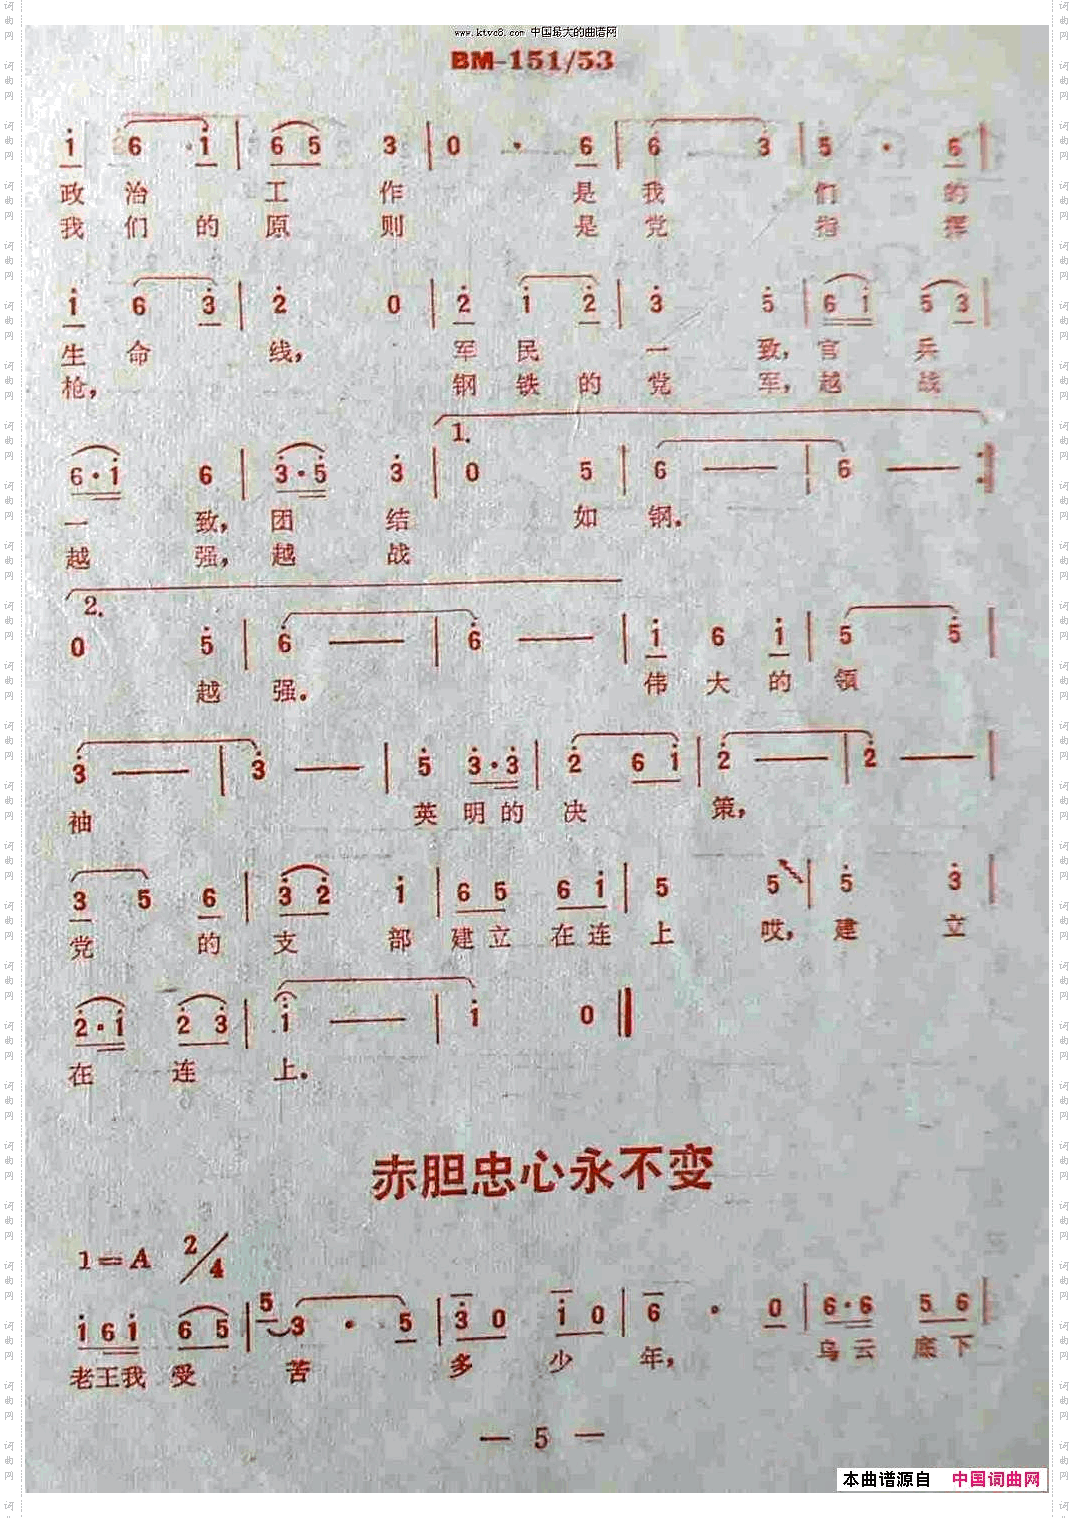 www.ktvc8.com 中国最大的曲谱网
BM-151/53
i 6 i | 6 5 3 | 0 · 6 | 6 3 | 5 · 6 |
政 治 工 作 是 我 们 的
我 们 的 原 则 是 党 指 挥
i 6 3 | 2 0 | 2 i 2 | 3 5 | 6 i 5 3 |
生 命 线, 军 民 一 致, 官 兵
枪, 钢 铁 的 党 军, 越 战
1.
6 · i 6 | 3 · 5 3 | 0 5 | 6 — | 6 — :|
一 致, 团 结 如 钢.
越 强, 越 战
2.
0 5 | 6 — | 6 — | i 6 i | 5 5 |
越 强. 伟 大 的 领
3 — | 3 — | 5 3 · 3 | 2 6 i | 2 — | 2 — |
袖 英 明 的 决 策,
3 5 6 | 3 2 i | 6 5 6 i | 5 5 | 5 3 |
党 的 支 部 建 立 在 连 上 哎, 建 立
2 · i 2 3 | i — | i 0 ‖
在 连 上.
赤胆忠心永不变
1=A 2/4
i 6 i 6 5 | 5 3 · 5 | 3 0 i 0 | 6 · 0 | 6 · 6 5 6 |
老王我 受 苦 多 少 年, 乌 云 底 下
— 5 —
本曲谱源自 中国词曲网
词曲网